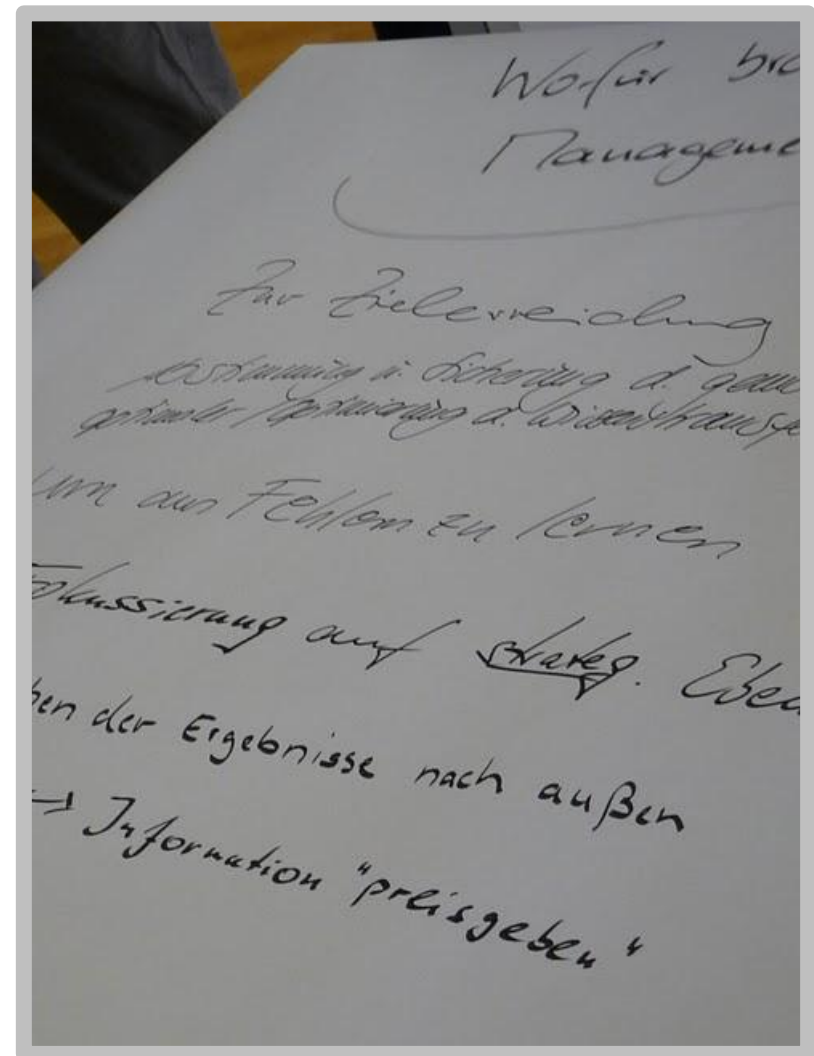 Wofür bra
Manageme
Zur Zielerreichung
Abstimmung u. Sicherung d. gem
optimaler / Optimierung d. Wissenstransfe
um aus Fehlern zu lernen
Fokussierung auf strateg. Eben
ben der Ergebnisse nach außen
→ Information "preisgeben"